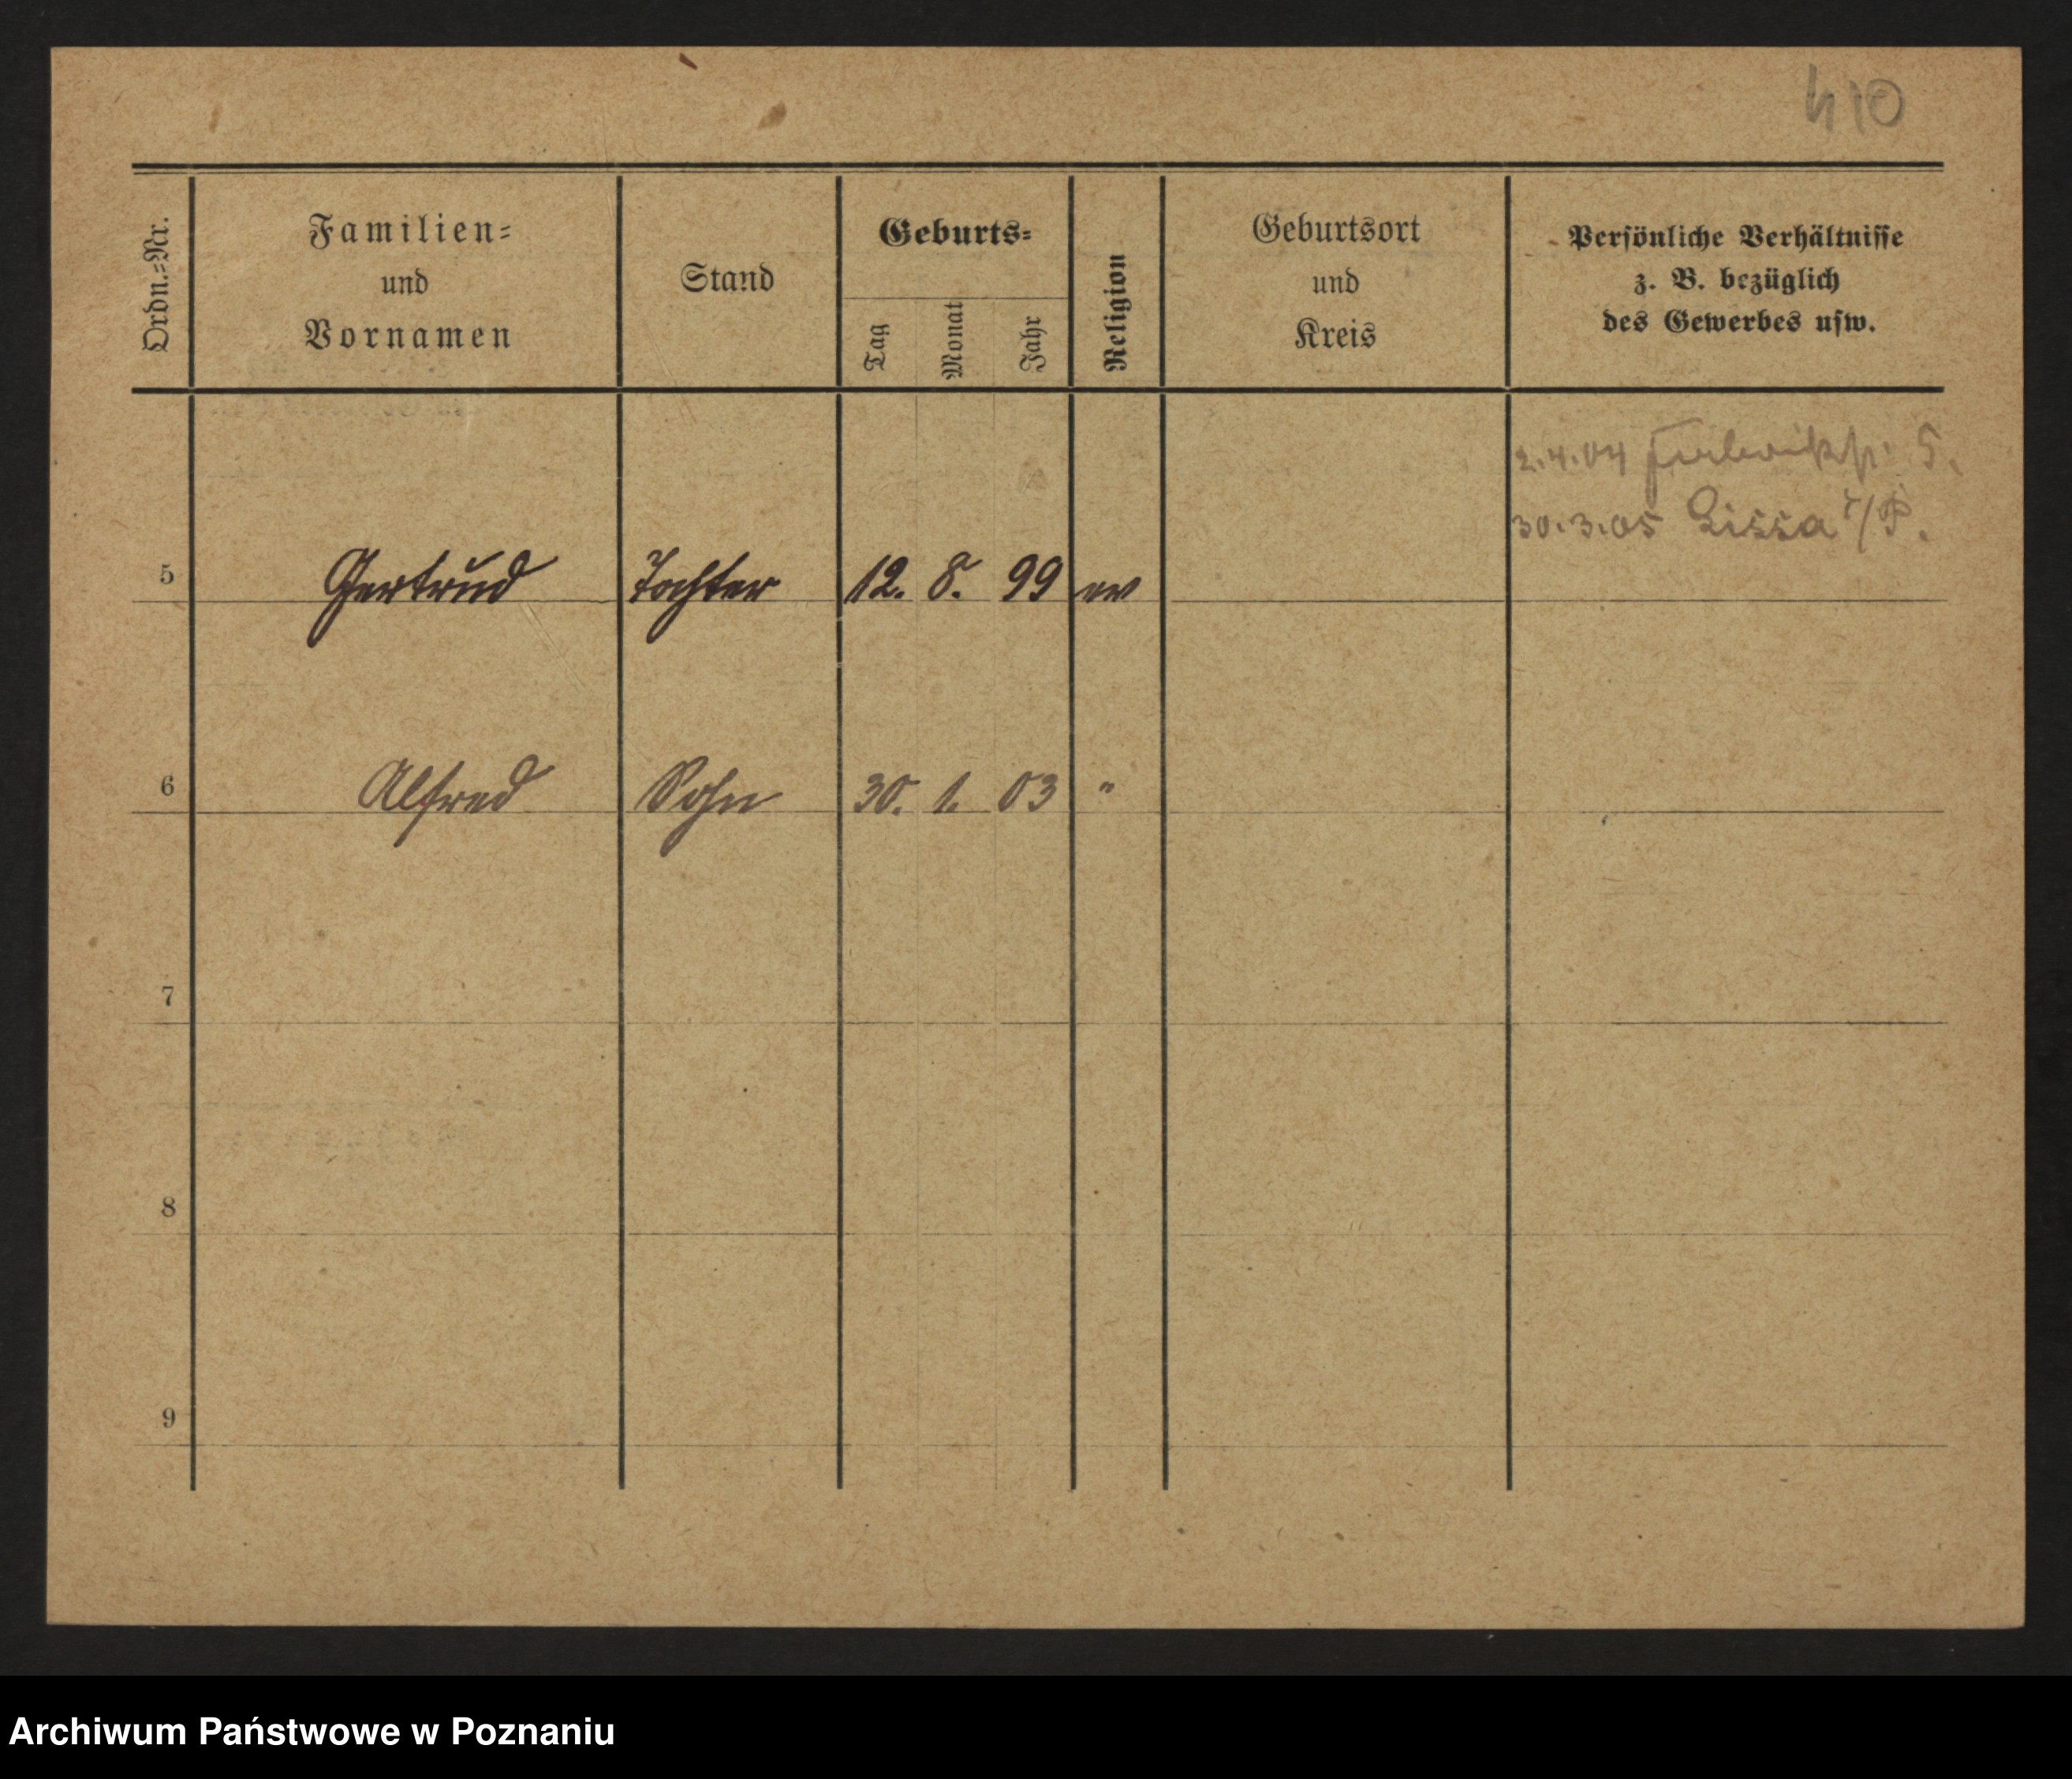 410
Ordn.=Nr.
Familien=
und
Vornamen
Stand
Geburts=
Tag
Monat
Jahr
Religion
Geburtsort
und
Kreis
Persönliche Verhältnisse
z. B. bezüglich
des Gewerbes usw.
2.4.04 5.
30.3.05 Lissa i/P.
5 Gertrud Tochter 12. 8. 99 ev
6 Alfred Sohn 30. 1. 03 "
7
8
9
Archiwum Państwowe w Poznaniu